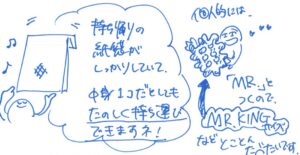 持ち帰りの
紙袋が
しっかりしていて、
中身1コだとしても
たのしく持ち運び
できますネ!
個人的には、
「MR.」と
つくので、
MR.KING
などと
だったいです。